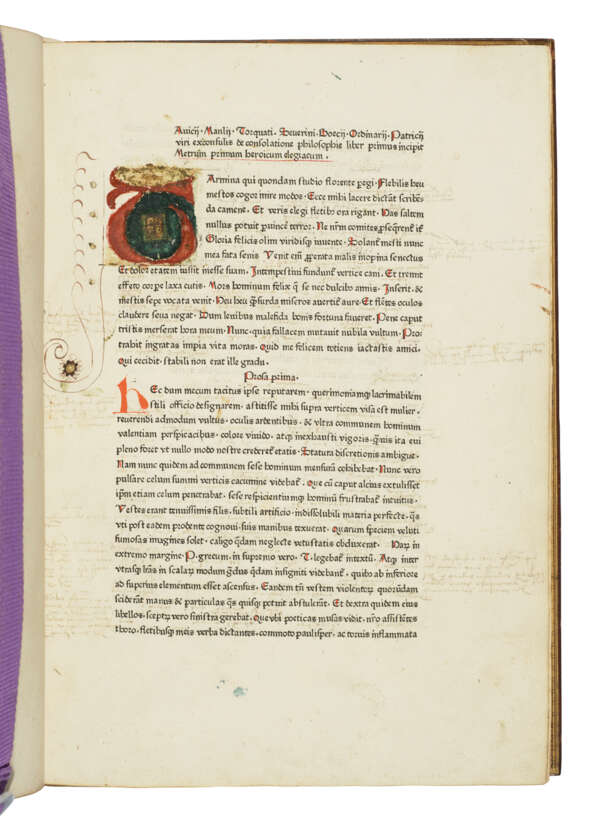 Anicij · Manlij · Torquati · Seuerini · Boecij · Ordinarij · Patricij
viri exconsulis de consolatione philosophie liber primus incipit
Metrum primum heroicum elegiacum ·
CArmina qui quondam studio florente peregi · Flebilis heu
mestos cogor inire modos · Ecce mihi lacere dictāt scribēs
da camene · Et veris elegi fletibꝰ ora rigant · Has saltem
nullus potuit ꝑuincẽ terror · Ne nr̄m comites ꝓseqrent̃ it̃
Gloria felicis olim viridisqꝫ iuuente · Solant̃ mesti nunc
mea fata senis Venit em̄ ꝓperata malis inopina senectus
Et dolor etatem iussit inesse suam · Intempestiui fundunt̃ vertice cani · Et tremit
effeto corpe laxa cutis · Mors hominum felix q̃ se nec dulcibꝰ annis · Inserit · &
mestis sepe vocata venit · Heu heu q̃ surda miseros auertit̃ aure · Et flētes oculos
claudere seua negat · Dum leuibus malefida bonis fortuna faueret · Pene caput
tristis merserat hora meum · Nunc · quia fallacem mutauit nubila vultum · Pro⸗
trahit ingratas impia vita moras · Quid me felicem totiens iactastis amici ·
Qui cecidit · stabili non erat ille gradu ·
Prosa prima ·
hEc dum mecum tacitus ipse reputarem · querimoniamqꝫ lacrimabilem
stili officio designarem · astitisse mihi supra verticem visa est mulier ·
reuerendi admodum vultus · oculis ardentibus · & vltra communem hominum
valentiam perspicacibus · colore viuido · atqꝫ inexhausti vigoris · q̃uis ita eui
pleno foret vt nullo modo nostre crederet̃ etatis · Statura discretionis ambigue ·
Nam nunc quidem ad communem sese hominum mensurā cohibebat · Nunc vero
pulsare celum summi verticis cacumine videbat̃ · Que cū caput alcius extulisset
ipm̄ etiam celum penetrabat · sese respicientiumqꝫ hominū frustrabat̃ intuitus ·
Vestes erant tenuissimis filis · subtili artificio · indissolubili materia perfecte · q̃s
vti post eadem prodente cognoui · suis manibus texuerat · Quarum speciem veluti
fumosas imagines solet · caligo q̃dam neglecte vetustatis obduxerat · Harū in
extremo margine · P · grecum · in supremo vero · T · legebat̃ intextū · Atqꝫ inter
vtrasqꝫ l̃ras in scalarꝫ modum g̃dus q̃dam insigniti videbant̃ · quibꝰ ab inferiore
ad superius elementum esset ascensus · Eandem tn̄ vestem violentorꝫ quorūdam
sciderāt manus & particulas q̃s quisqꝫ potuit abstulerāt · Et dextra quidem eius
libellos · sceptrꝫ vero sinistra gerebat · Que vbi poeticas musas vidit · nr̄o assistētes
thoro · fletibusqꝫ meis verba dictantes · commota paulisper · ac toruis inflammata